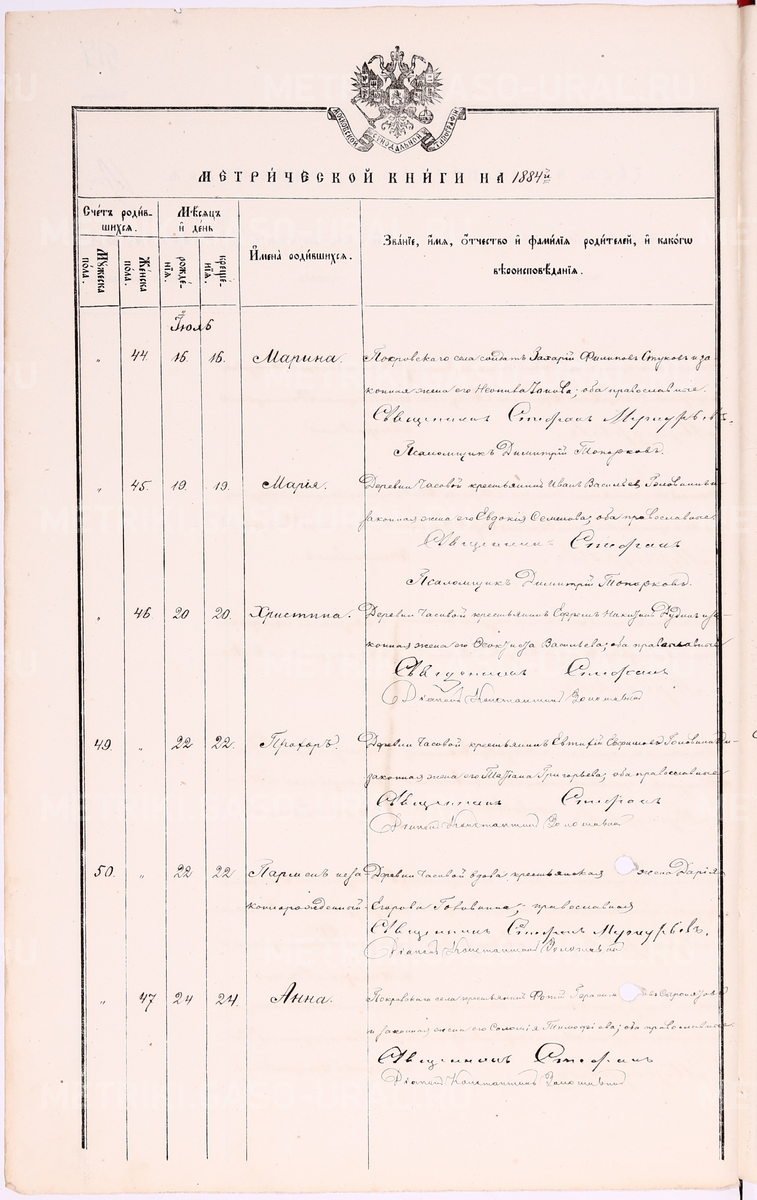 МОСКОВСКОЙ СѴНОДАЛЬНОЙ ТѴПОГРАФІИ
МЕТРИЧЕСКОЙ КНИГИ НА 1884й
Счетъ родившихся.
Мѣсяцъ и день
Имена родившихся.
Званіе, имя, отчество и фамилія родителей, и какогѡ вѣроисповѣданія.
Мужеска пола.
Женска пола.
рожденія.
крещенія.
Іюль
" 44. 16. 16. Марина. Покровскаго села солдатъ Захарій Филиповъ Стуковъ и законная жена его Неонила; оба православные.
Священникъ Стефанъ Меркурьевъ.
Псаломщикъ Димитрій Топорковъ.
" 45. 19. 19. Марія. Деревни Часовой крестьянинъ Иванъ Васильевъ и законная жена его Евдокія Семенова; оба православные
Священникъ Стефанъ
Псаломщикъ Димитрій Топорковъ.
" 46 20 20. Христина. Деревни Часовой крестьянинъ Ефремъ Никитинъ и законная жена его Ѳеоктиста Васильева; оба православные
Священникъ Стефанъ
Діаконъ Константинъ
49 " 22 22. Прохоръ. Деревни Часовой крестьянинъ Евтихій и законная жена его Татіана Григорьева; оба православные
Священникъ Стефанъ
Діаконъ Константинъ
50. " 22 22 Парменъ незаконнорожденный Деревни Часовой вдова крестьянская жена Дарія
Егорова православная
Священникъ Стефанъ Меркурьевъ.
Діаконъ Константинъ
" 47 24 24. Анна. Покровскаго села крестьянинъ Фотій
и законная жена его Соломія Тимофеева; оба православные.
Священникъ Стефанъ
Діаконъ Константинъ